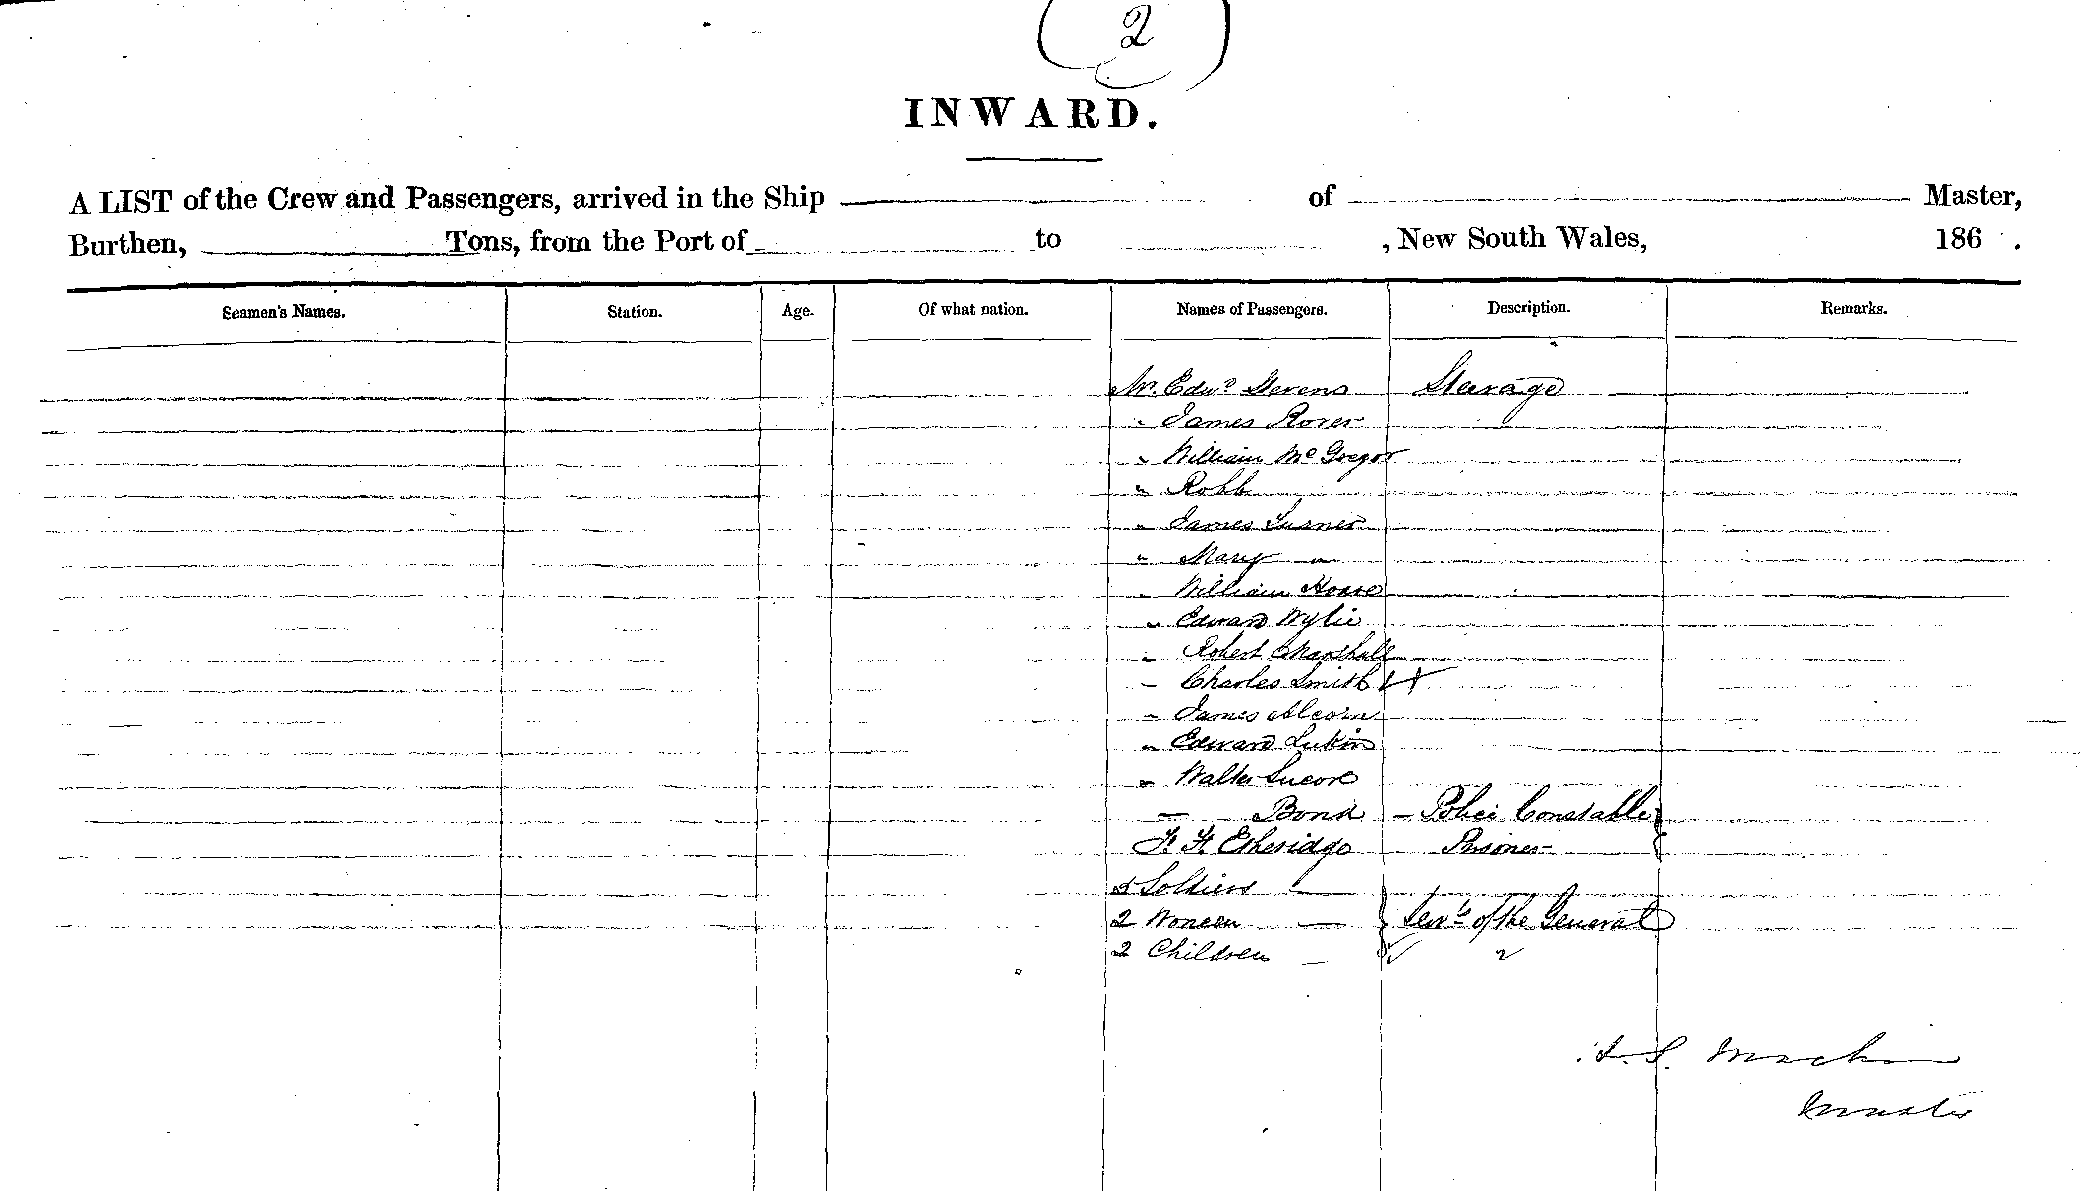 2
INWARD.
A LIST of the Crew and Passengers, arrived in the Ship of Master,
Burthen, Tons, from the Port of to , New South Wales, 186 .
Seamen's Names. Station. Age. Of what nation. Names of Passengers. Description. Remarks.
Mr. Edwd Stevens Steerage
" James Rover
" William McGregor
" Robb
" James Turner
" Mary "
" William Hoare
" Edward Wylie
" Robert Marshall
" Charles Smith
" James Alcorn
" Edward Lukin
" Walter
— Bond — Police Constable
F. F. Etheridge Prisoner
5 Soldiers —
2 Women — Servts of the General
2 Children —
Machin
Master